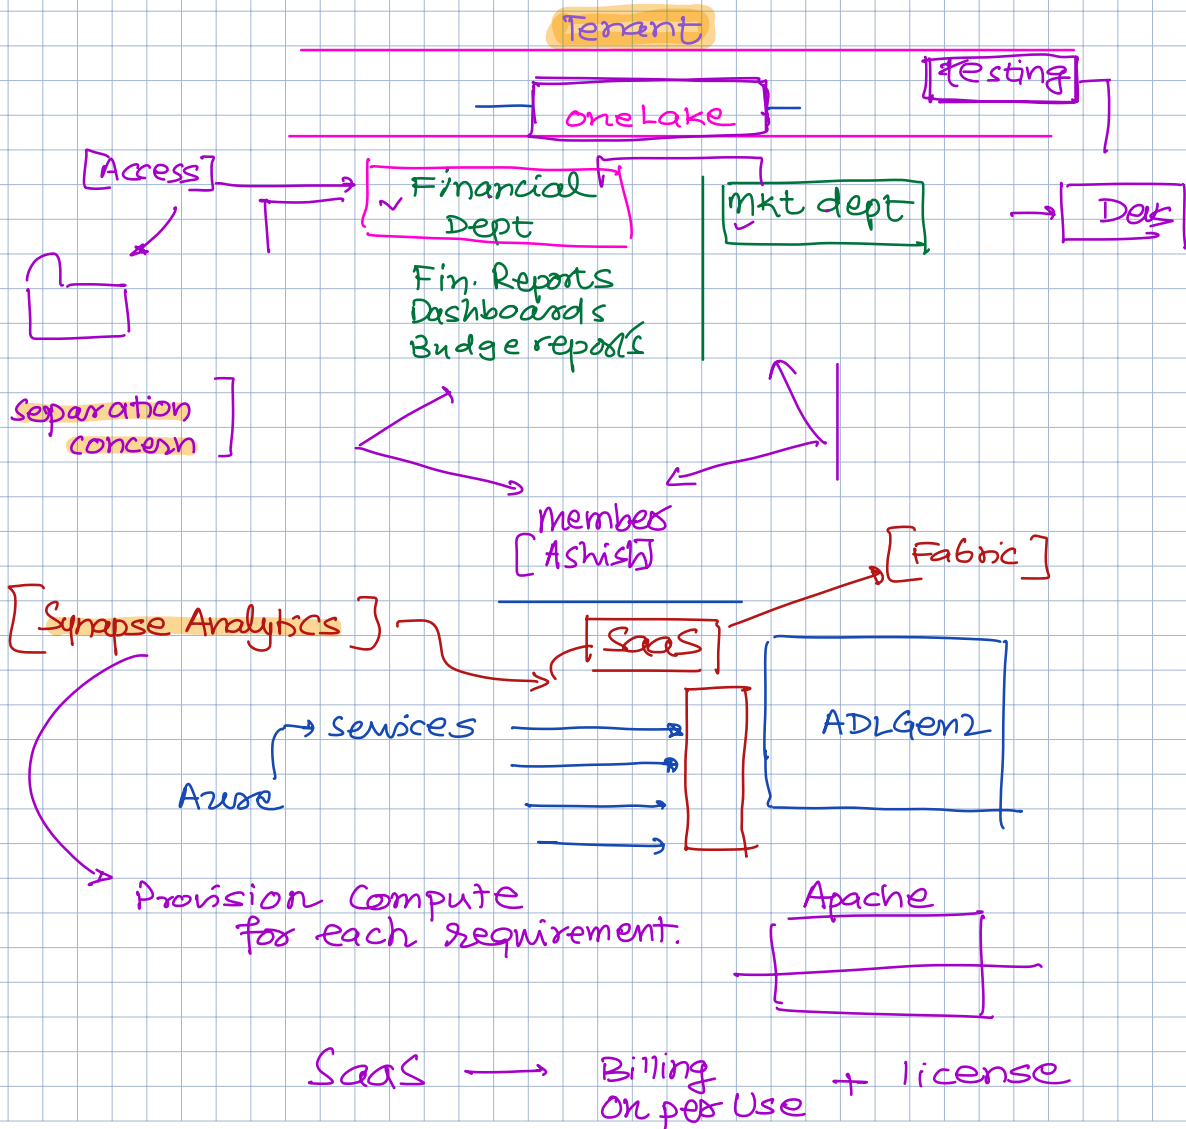 Tenant
Testing
oneLake
[Access]
Financial
Dept
Mkt dept
Dev
Fin. Reports
Dashboards
Budge reports
separation
concern
member
[Ashish]
[Fabric]
[Synapse Analytics]
SaaS
services
ADLGen2
Azure
Provision Compute
for each requirement.
Apache
SaaS → Billing + license
On per Use